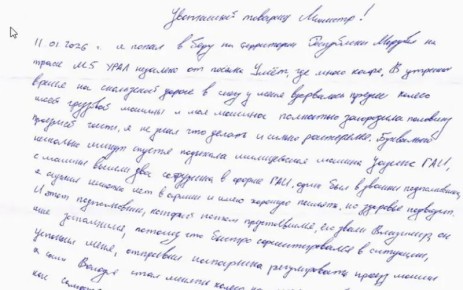 Уважаемый товарищ Министр!
11.01.2026 г. я попал в беду на территории Республики Мордовия на
трассе М5 УРАЛ недалеко от поселка Умёт, где много кафе. В утреннее
время на скользкой дороге в снегу у меня взорвалось переднее колесо
моей грузовой машины и моя машина полностью загородила половину
проезжей части, я не знал что делать и сильно растерялся. Буквально
несколько минут спустя подъехала милицейская машина УАЗик ГАИ,
с машины вышли два сотрудника в форме ГАИ, один был в звании подполковника,
я служил много лет в армии и имею хорошую память, но здоровье подводит.
И этот подполковник, который потом представился, его звали Владимир, он
мне запомнился, потому что быстро сориентировался в ситуации,
успокоил меня, отправил напарника регулировать проезд машин
а сам Володя стал менять колесо
как